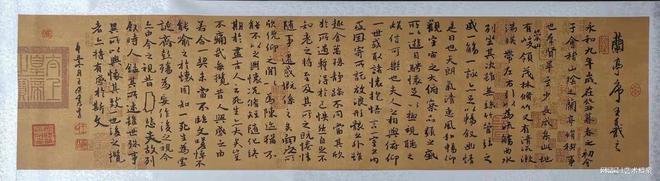 蘭亭序王羲之
永和九年歲在癸丑暮春之初會
于會稽山陰之蘭亭脩禊事
也群賢畢至少長咸集此地
有崇山峻領茂林脩竹又有清流激
湍映帶左右引以為流觴曲水
列坐其次雖無絲竹管弦之
盛一觴一詠亦足以暢敘幽情
是日也天朗氣清惠風和暢仰
觀宇宙之大俯察品類之盛
所以遊目騁懷足以極視聽之
娛信可樂也夫人之相與俯仰
一世或取諸懷抱悟言一室之內
或因寄所託放浪形骸之外雖
趣舍萬殊靜躁不同當其欣
於所遇暫得於己怏然自足不
知老之將至及其所之既倦情
隨事遷感慨係之矣向之所
欣俛仰之間以為陳迹猶不
能不以之興懷況脩短隨化終
期於盡古人云死生亦大矣豈
不痛哉每攬昔人興感之由
若合一契未嘗不臨文嗟悼不
能喻之於懷固知一死生為虛
誕齊彭殤為妄作後之視今
亦由今之視昔悲夫故列
敘時人錄其所述雖世殊事
異所以興懷其致一也後之攬
者亦將有感於斯文